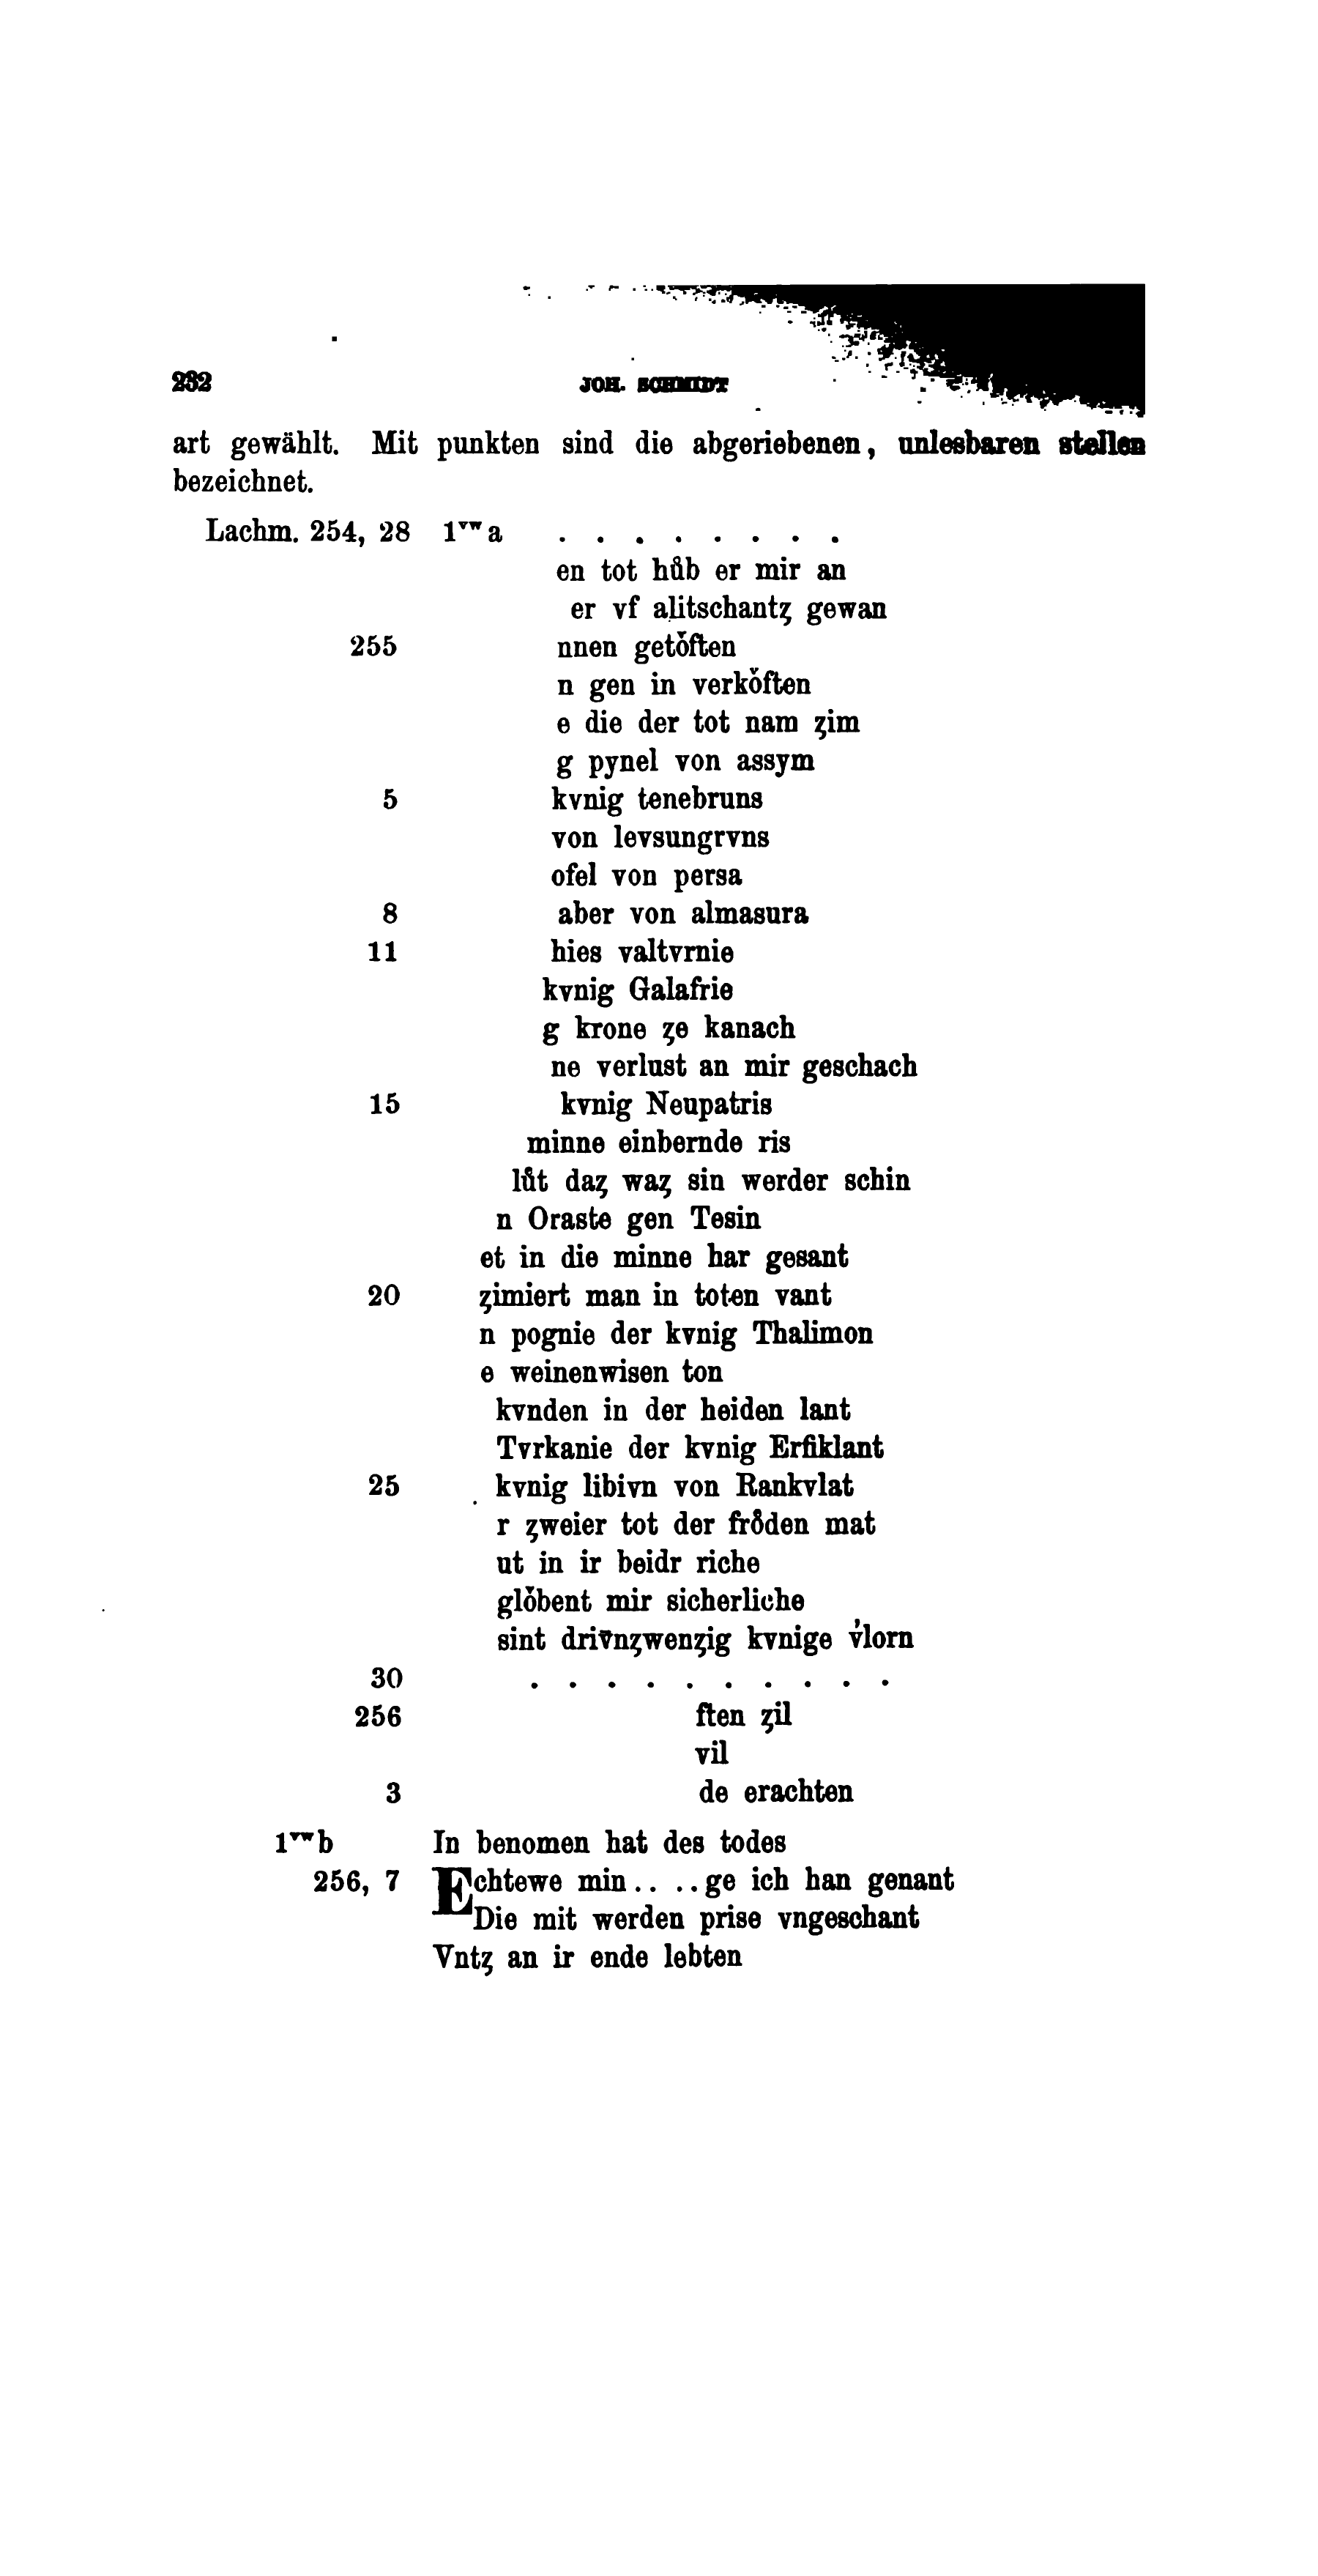 232 JOH. SCHMIDT
art gewählt. Mit punkten sind die abgeriebenen, unlesbaren stellen
bezeichnet.
Lachm. 254, 28 1ᵛʷ a . . . . . . . .
en tot hůb er mir an
er vf alitschantʒ gewan
255 nnen getǒften
n gen in verkǒften
e die der tot nam ʒim
g pynel von assym
5 kvnig tenebruns
von levsungrvns
ofel von persa
8 aber von almasura
11 hies valtvrnie
kvnig Galafrie
g krone ʒe kanach
ne verlust an mir geschach
15 kvnig Neupatris
minne einbernde ris
lůt daʒ waʒ sin werder schin
n Oraste gen Tesin
et in die minne har gesant
20 ʒimiert man in toten vant
n pognie der kvnig Thalimon
e weinenwisen ton
kvnden in der heiden lant
Tvrkanie der kvnig Erfiklant
25 kvnig libivn von Rankvlat
r ʒweier tot der fro̊den mat
ut in ir beidr riche
glǒbent mir sicherliche
sint driv̄nʒwenʒig kvnige v̓lorn
30 . . . . . . . . . .
256 ften ʒil
vil
3 de erachten
1ᵛʷ b In benomen hat des todes
256, 7 Echtewe min . . . . ge ich han genant
Die mit werden prise vngeschant
Vntʒ an ir ende lebten